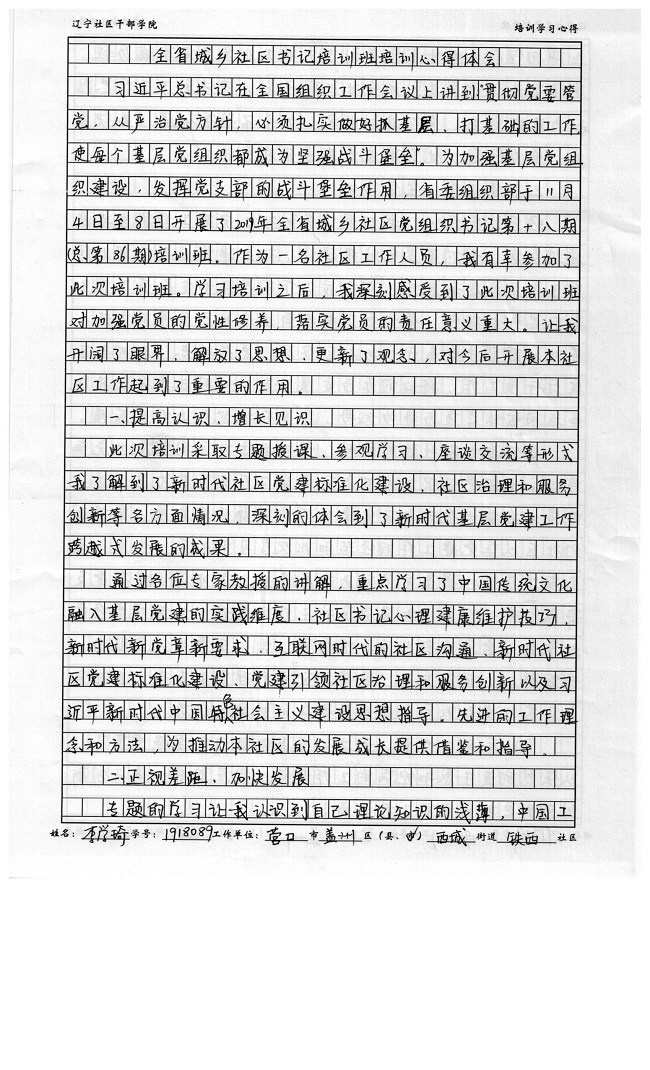 辽宁社区干部学院 培训学习心得
全省城乡社区书记培训班培训心得体会
习近平总书记在全国组织工作会议上讲到"贯彻党要管
党、从严治党方针,必须扎实做好抓基层、打基础的工作,
使每个基层党组织都成为坚强战斗堡垒"。为加强基层党组
织建设,发挥党支部的战斗堡垒作用,省委组织部于11月
4日至8日开展了2019年全省城乡社区党组织书记第十八期
(总第86期)培训班。作为一名社区工作人员,我有幸参加了
此次培训班。学习培训之后,我深刻感受到了此次培训班
对加强党员的党性修养,落实党员的责任意义重大。让我
开阔了眼界、解放了思想、更新了观念,对今后开展本社
区工作起到了重要的作用。
一、提高认识、增长见识
此次培训采取专题授课、参观学习、座谈交流等形式
我了解到了新时代社区党建标准化建设、社区治理和服务
创新等各方面情况,深刻的体会到了新时代基层党建工作
跨越式发展的成果。
通过各位专家教授的讲解,重点学习了中国传统文化
融入基层党建的实践维度、社区书记心理健康维护技巧、
新时代新党章新要求、互联网时代的社区沟通、新时代社
区党建标准化建设、党建引领社区治理和服务创新以及习
近平新时代中国特色社会主义建设思想指导。先进的工作理
念和方法,为推动本社区的发展成长提供借鉴和指导。
二、正视差距、加快发展
专题的学习让我认识到自己理论知识的浅薄,中国工
姓名:李学琦 学号:1918089 工作单位:营口 市 盖州 区(县、市) 西城 街道 铁西 社区